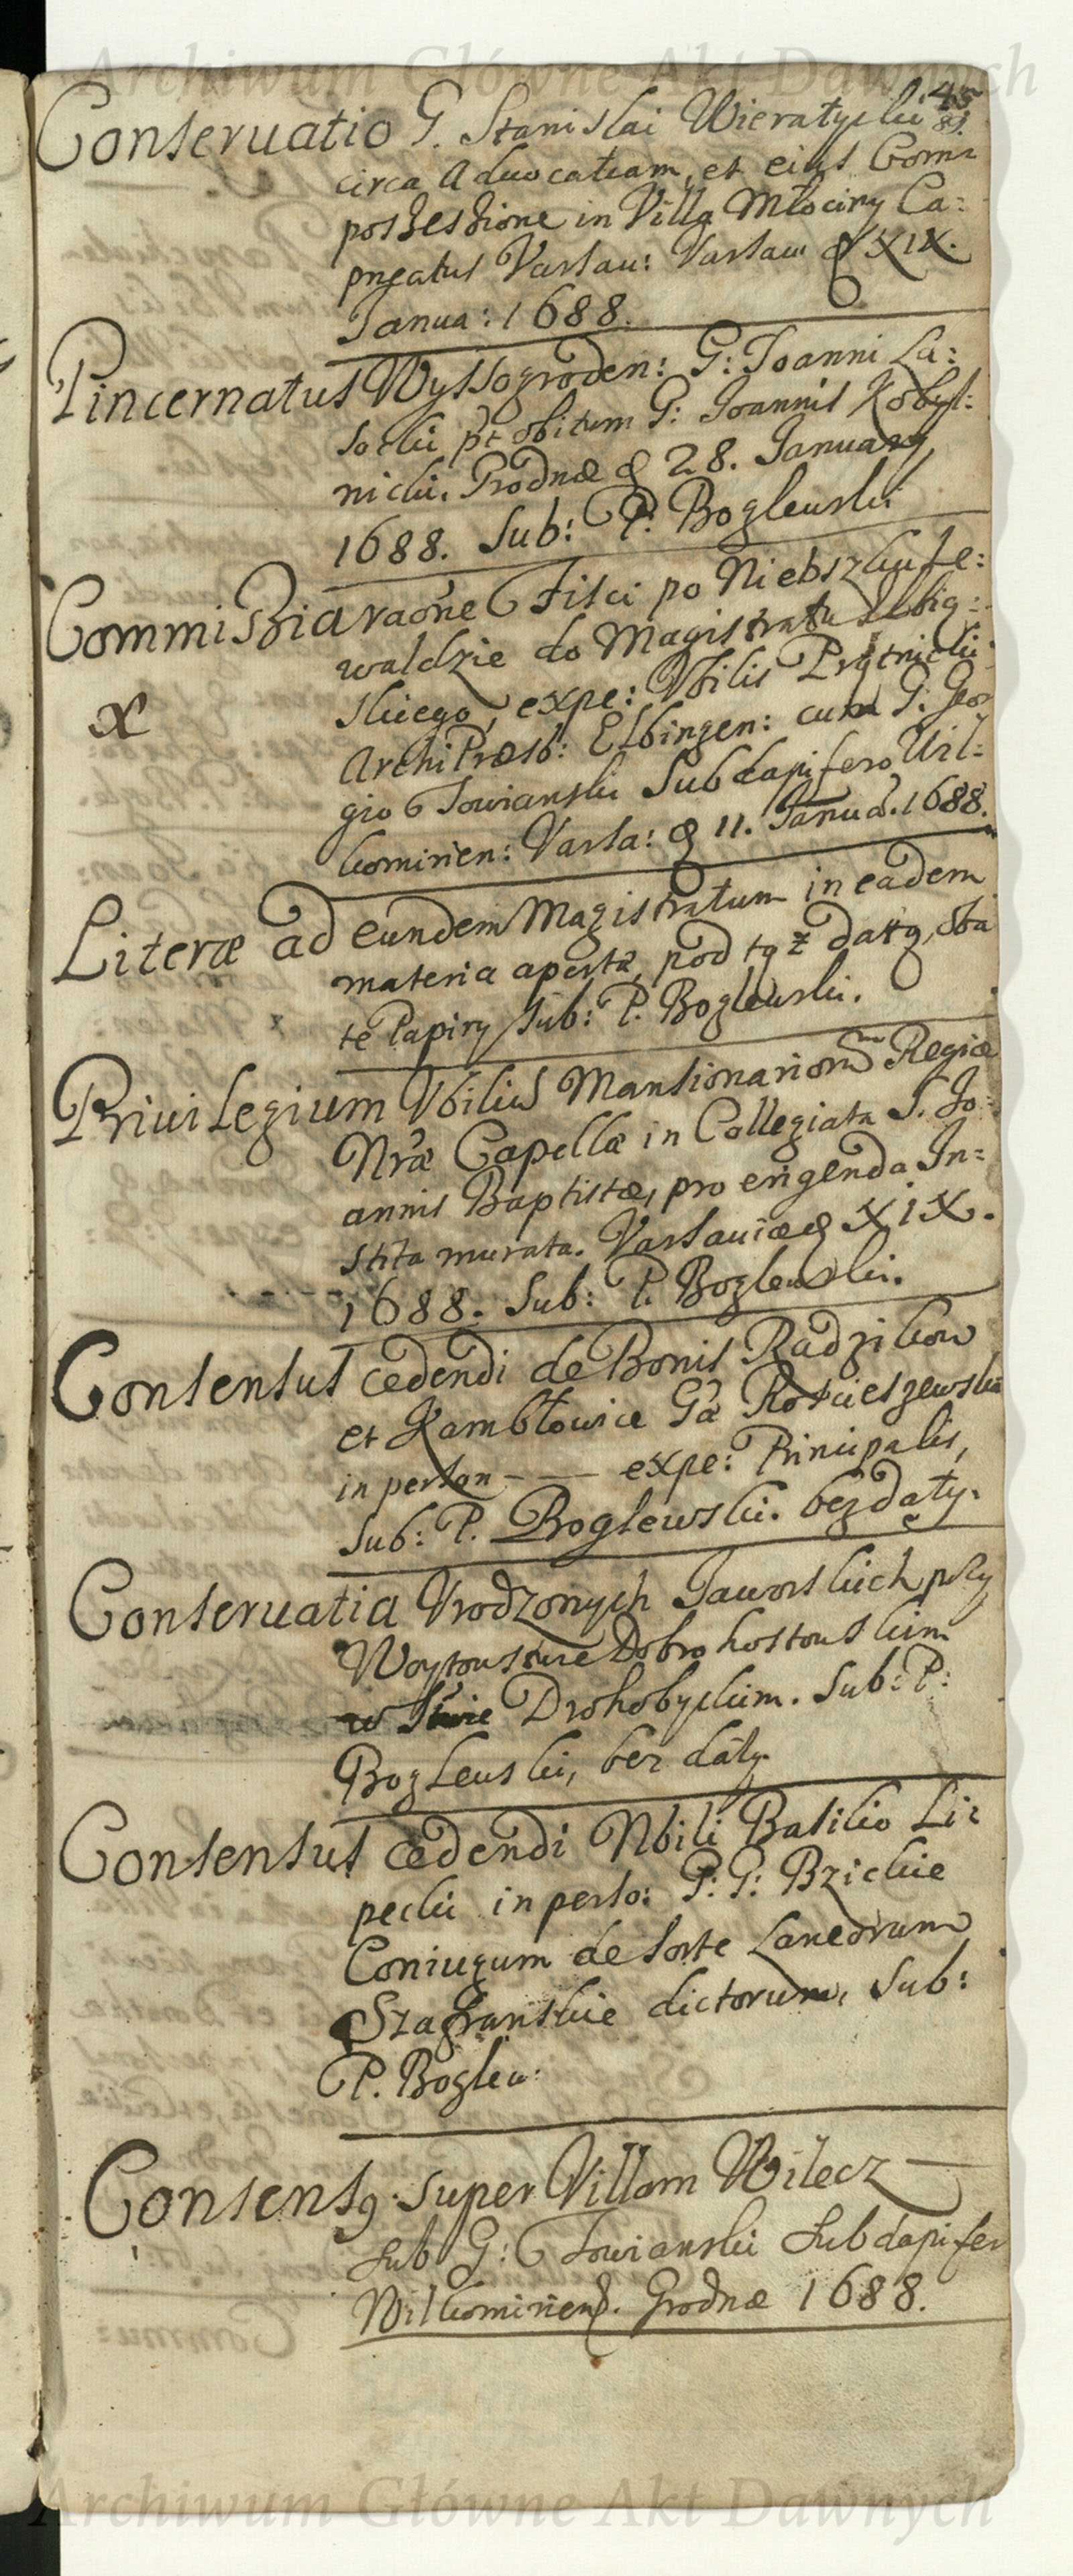 Archiwum Główne Akt Dawnych
45
81.
Conservatio G. Stanislai Wieratycki
circa Advocatiam, et eius Com
possessione in Villa Młociny Ca:
pneatus Varsau: Varsau d XIX.
Janua: 1688.
Pincernatus Wyssogroden: G: Joanni La:
socki pt obitum G: Joannis Kobyl:
nicki. Grodnæ d 28. January
1688. Sub: P. Boglewski
Commissia raõne Fisci po Niebszku Fe:
waldzie do Magistratu Elbig:
skiego, expe: Vbilis Prętnicki
x
Archi Præsb: Elbingen: cum G: Geor
gio Towianski Subdapifero Wil:
komirien: Varsa: d 11. Janua. 1688.
Literæ ad eundem Magistratum in eadem
materia aperta, pod tą z datą, oba
te Papiry Sub: P. Boglewski.
Privilegium Vbiliũ Mansionariorũ Regiæ
Nræ Capellæ in Collegiata S. Jo:
annis Baptistæ, pro erigenda In:
stita murata. Varsaviæ d XIX.
1688. Sub: P. Boglewski.
Consensus cedendi de Bonis Radzikow
et Kambłowice Gã Rościeszewski
in person - — expe: Principalis,
Sub: P. Boglewski. bez daty.
Conservatia Vrodzonych Jaworskich przy
Woytowstwie Dobrohostowskim
w Stwie Drohobyckim. Sub: P:
Boglewski, bez daty.
Consensus cedendi Nbili Basilio Li:
pecki in perso: G: G: Bzickie
Coniugum de sorte Laneorum
Szafranskie dictorum, Sub:
P. Boglew:
Consensq super Villam Wilecz —
sub G: Towianski Subdapifer
Wilkomirien. Grodnæ 1688.
Archiwum Główne Akt Dawnych